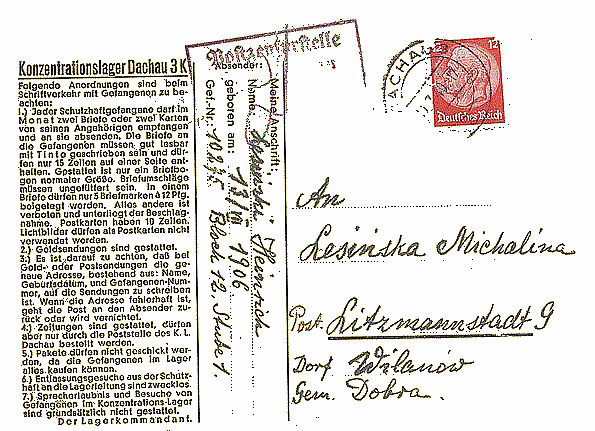 Konzentrationslager Dachau 3 K
Folgende Anordnungen sind beim
Schriftverkehr mit Gefangenen zu be-
achten:
1.) Jeder Schutzhaftgefangene darf im
Monat zwei Briefe oder zwei Karten
von seinen Angehörigen empfangen
und an sie absenden. Die Briefe an
die Gefangenen müssen gut lesbar
mit Tinte geschrieben sein und dür-
fen nur 15 Zeilen auf einer Seite ent-
halten. Gestattet ist nur ein Briefbo-
gen normaler Größe. Briefumschläge
müssen ungefüttert sein. In einem
Briefe dürfen nur 5 Briefmarken à 12 Pfg.
beigelegt werden. Alles andere ist
verboten und unterliegt der Beschlag-
nahme. Postkarten haben 10 Zeilen.
Lichtbilder dürfen als Postkarten nicht
verwendet werden.
2.) Geldsendungen sind gestattet.
3.) Es ist darauf zu achten, daß bei
Geld- oder Postsendungen die ge-
naue Adresse, bestehend aus: Name,
Geburtsdatum, und Gefangenen-Num-
mer, auf die Sendungen zu schreiben
ist. Wenn die Adresse fehlerhaft ist,
geht die Post an den Absender zu-
rück oder wird vernichtet.
4.) Zeitungen sind gestattet, dürfen
aber nur durch die Poststelle des K. L.
Dachau bestellt werden.
5.) Pakete dürfen nicht geschickt wer-
den, da die Gefangenen im Lager
alles kaufen können.
6.) Entlassungsgesuche aus der Schutz-
haft an die Lagerleitung sind zwecklos.
7.) Sprecherlaubnis und Besuche von
Gefangenen im Konzentrations-Lager
sind grundsätzlich nicht gestattet.
Der Lagerkommandant.
Postzensurstelle
Absender:
Meine Anschrift:
Name: Lesinski Heinrich
geboren am: 1906
Gef.-Nr. Block 12, Stube 1.
DACHAU
12
Deutsches Reich
An
Lesińska Michalina
Post. Litzmannstadt 9
Dorf Wilanów
Gem. Dobra.